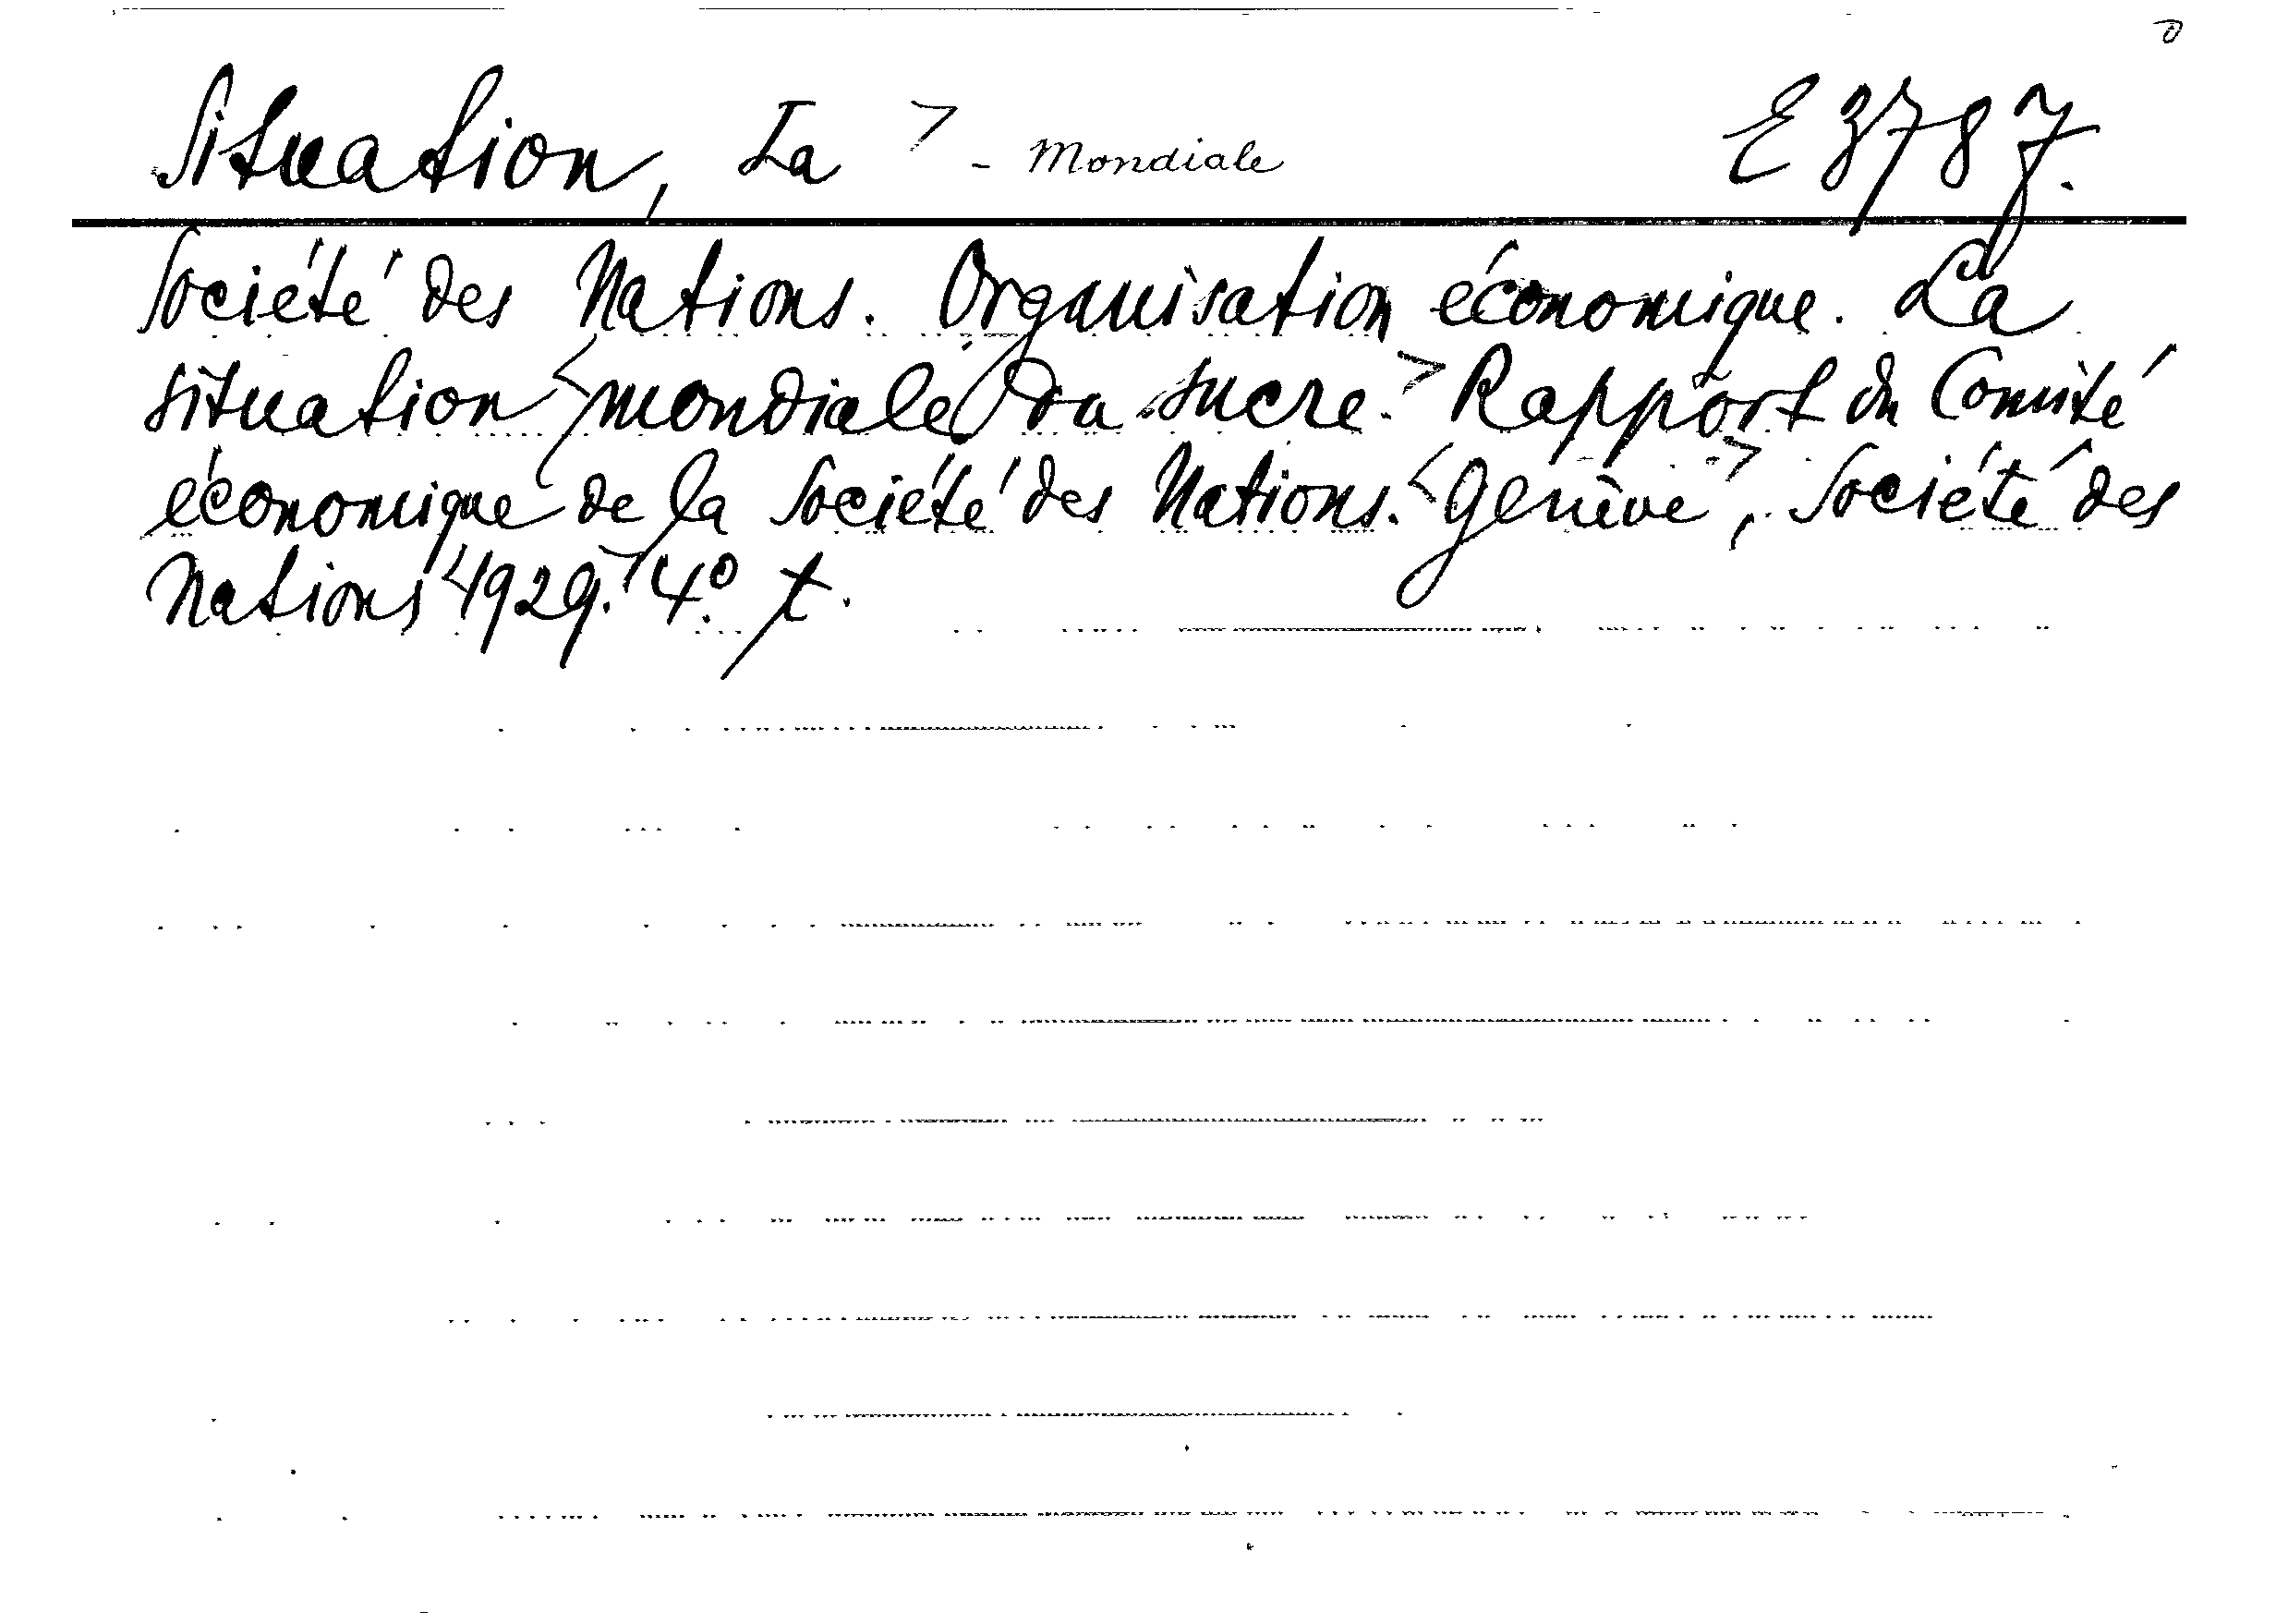 Situation, La > - Mondiale E 3787.
Société des Nations. Organisation économique. La
situation <mondiale du sucre.> Rapport du Comité
économique de la Société des Nations. <Genève>, Société des
Nations <1929.> 4.° t.